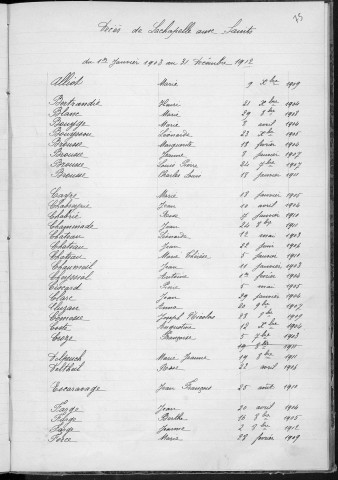 Décès de Lachapelle aux Saints
du 1er Janvier 1903 au 31 Décembre 1912
Alliot Marie 9 Xbre 1909
Bertrandie 21 Xbre 1904
Blanc Marie 29 8bre 1903
Marie 8 avril 1904
Bouysson Léonarde 23 Xbre 1905
Brousse Marguerite 18 février 1904
Brousse Jeanne 8 janvier 1907
Brousse Louis Pierre 24 7bre 1907
Brousse Charles Louis 18 janvier 1911
Marie 18 janvier 1905
Jean 10 avril 1904
Chabrié Rose 7 janvier 1910
Chaminade Jean 24 8bre 1911
Château Léonarde 12 mai 1903
Château Jean 22 juin 1906
Château Marie Thérèse 5 janvier 1910
Chaumeil Jean 11 janvier 1903
Antoine 1er février 1904
Crocard 5 mai 1905
Clare Jean 29 janvier 1904
Anna 20 9bre 1907
Joseph Nicolas 23 8bre 1909
Coste Augustine 12 Xbre 1904
Françoise 5 7bre 1903
19 8bre 1911
Delpeuch Marie Jeanne 19 8bre 1911
Delteil Rose 22 avril 1906
Escaravage Jean François 25 août 1910
Farge Jean 20 avril 1904
Farge Berthe 26 8bre 1905
Farge Jeanne 2 8bre 1912
Marie 28 février 1909